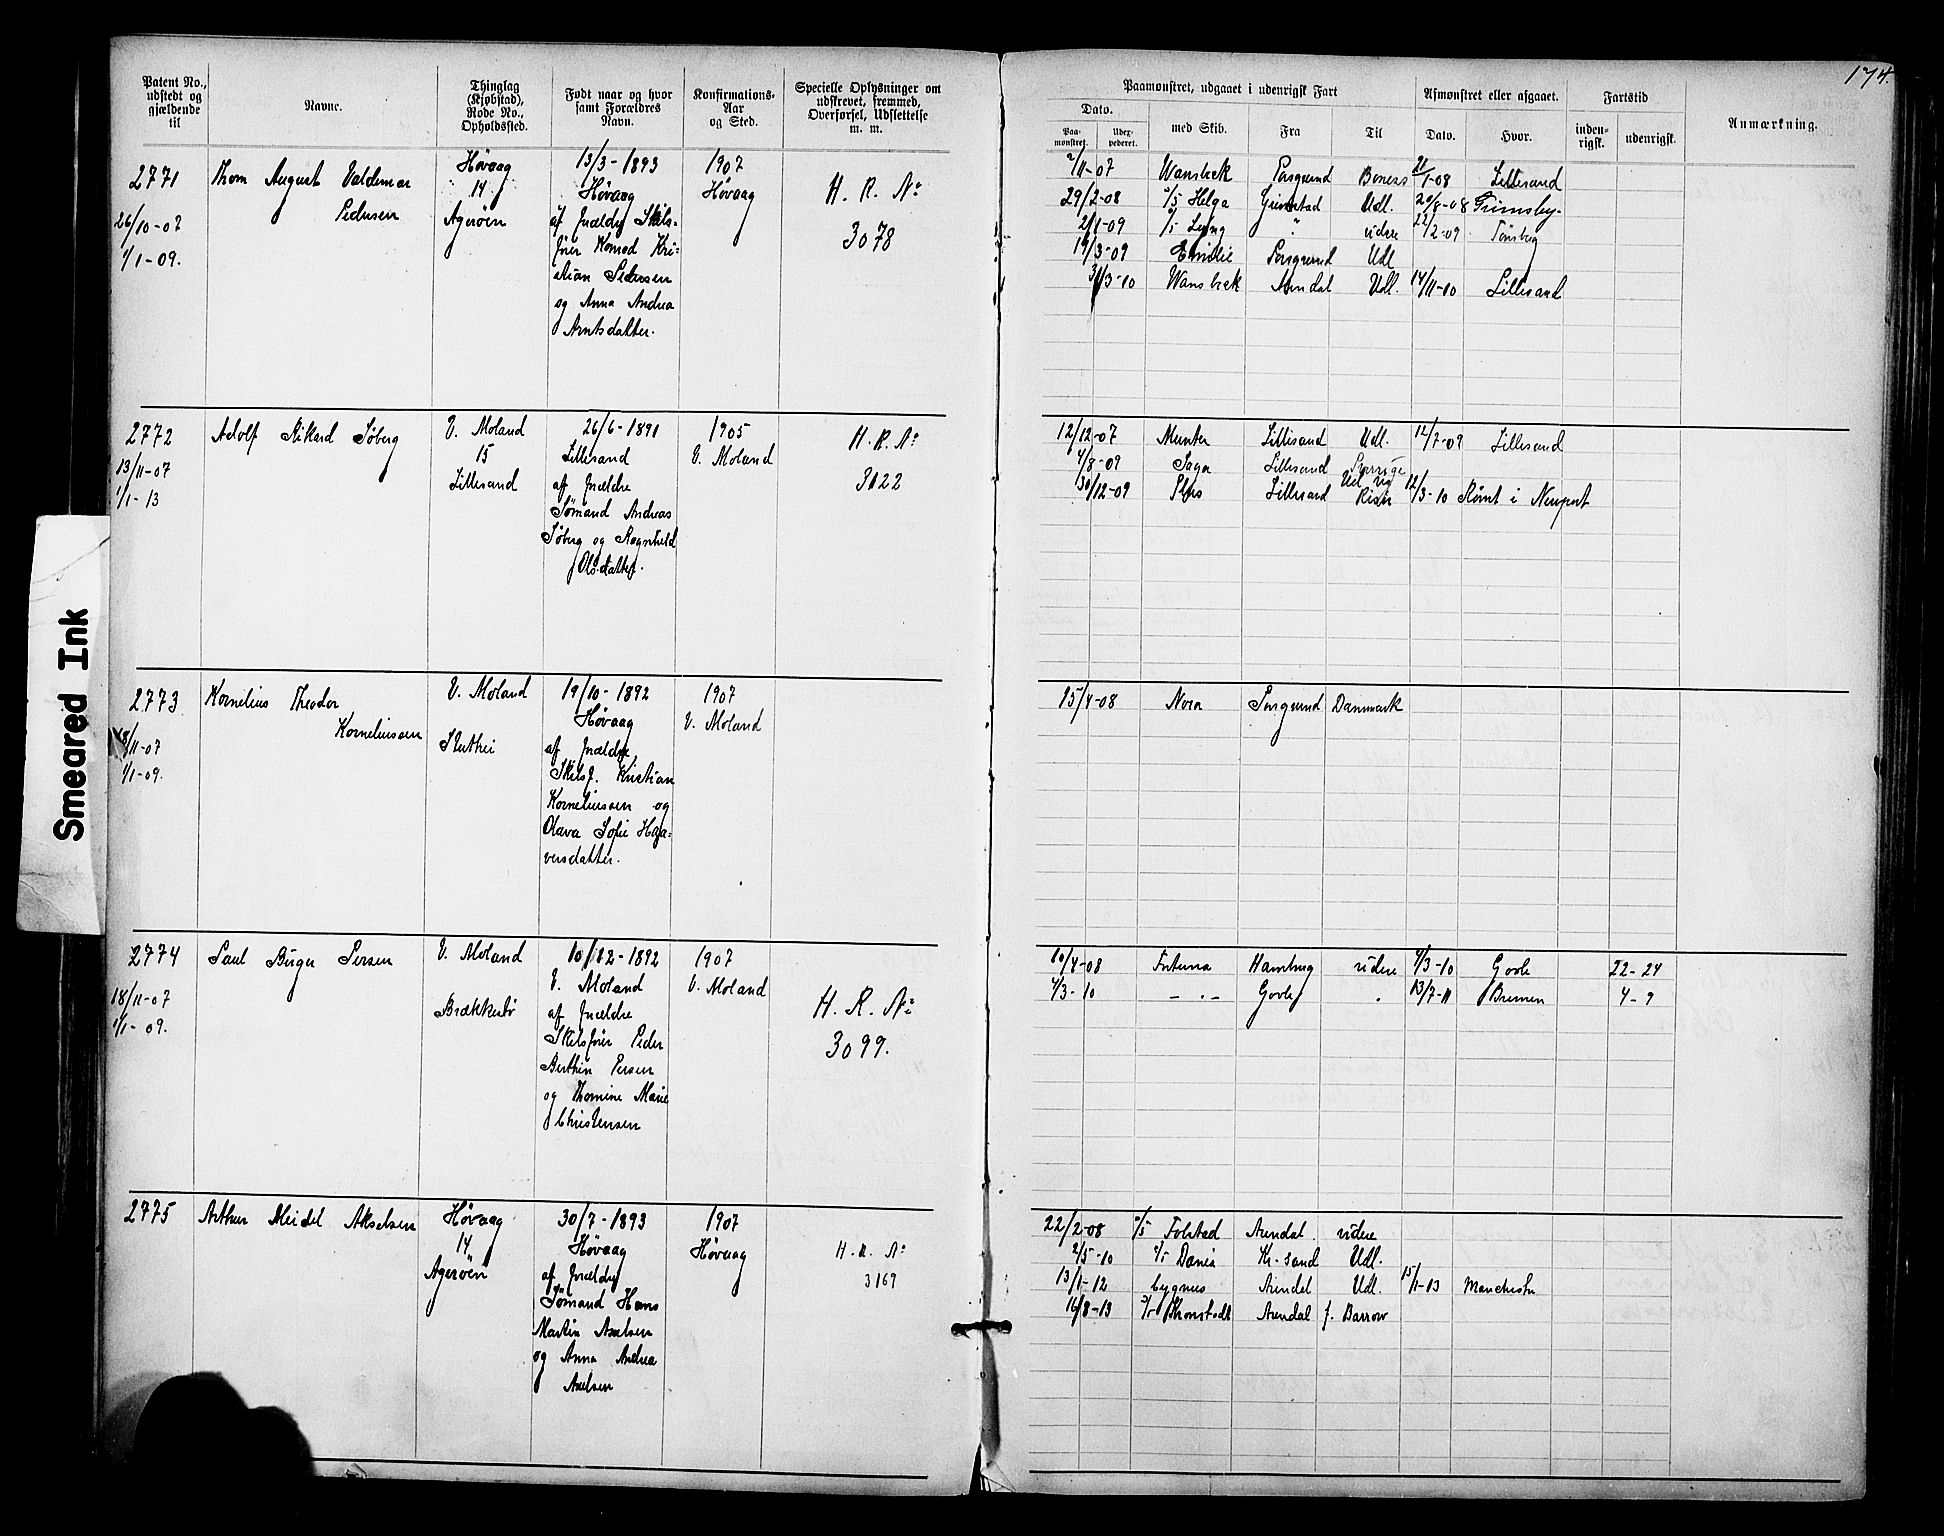 174.
Patent No., udstedt og gjældende til
Navne.
Thinglag (Kjøbstad), Rode No., Opholdssted.
Født naar og hvor samt Forældres Navn.
Konfirmations-Aar og Sted.
Specielle Oplysninger om udskrevet, fremmed, Overførsel, Udslettelse m. m.
Paamønstret, udgaaet i udenrigsk Fart
Afmønstret eller afgaaet.
Fartstid
Anmærkning.
Dato.
Paamønstret.
Udexpederet.
med Skib.
Fra
Til
Dato.
Hvor.
indenrigsk.
udenrigsk.
2771
26/10-07
1/1-09.
Thom August Valdemar
Pedersen
Høvaag
14
Agerøen
13/3-1893
Høvaag
af Forældre Skibs-
fører Konrad Kri-
stian Pedersen
og Anna Andrea
Arntsdatter.
1907
Høvaag
H. R. No
3078
/11-07 Wansbek Porsgrund Boness /1-08 Lillesand
29/2-08 S/S Helga Grimstad Udl. 20/8-08 Grimsby
2/1-09 " videre 22/2-09 Tønsberg
19/3-09 Emilie Porsgrund Udl
31/3-10 Wansbek Arendal Udl. 14/11-10 Lillesand
2772
13/11-07
1/1-13
Adolf Rikard Søberg
V. Moland
15
Lillesand
26/6-1891
Lillesand
af Forældre
Sømand Andreas
Søberg og Ragnhild
Olsdatter.
1905
V. Moland
H. R. No
3122
12/12-07 Munter Lillesand Udl. 12/7-09 Lillesand
4/8-09 Saga Lillesand Sverige
30/12-09 Lillesand Udl via Risør 12/3-10 Rømt i Newport
2773
18/11-07
1/1-09.
Kornelius Theodor
Korneliussen
V. Moland
19/10-1892
Høvaag
af Forældre
Skibsf. Kristian
Korneliussen og
Olava Sofie Haa-
versdatter.
1907
V. Moland
15/4-08 Nora Porsgrund Danmark
2774
18/11-07
1/1-09.
Paul Birger Persen
V. Moland
Brækkestø
10/12-1892
V. Moland
af Forældre
Skibsfører Peder
Berthin Persen
og Thomine Marie
Christensen
1907
V. Moland
H. R. No
3099.
10/4-08 Fortuna Hamburg videre 4/3-10 Goole 22-24
4/3-10 — „ — Goole " 13/7-11 Bremen 4-9
2775
Arthur Meidel Akselsen
Høvaag
14
Agerøen
30/7-1893
Høvaag
af Forældre
Sømand Hans
Martin Axelsen
og Anna Andrea
Axelsen
1907
Høvaag
H. R. No
3169
22/2-08 S/S Folstad Arendal videre
2/5-10 S/S Dania Kr.sand Udl.
13/1-12 Cygnus Arendal Udl. 15/1-13 Manchester
16/8-13 S/S Kronstadt Arendal f. Barrow
Smeared Ink